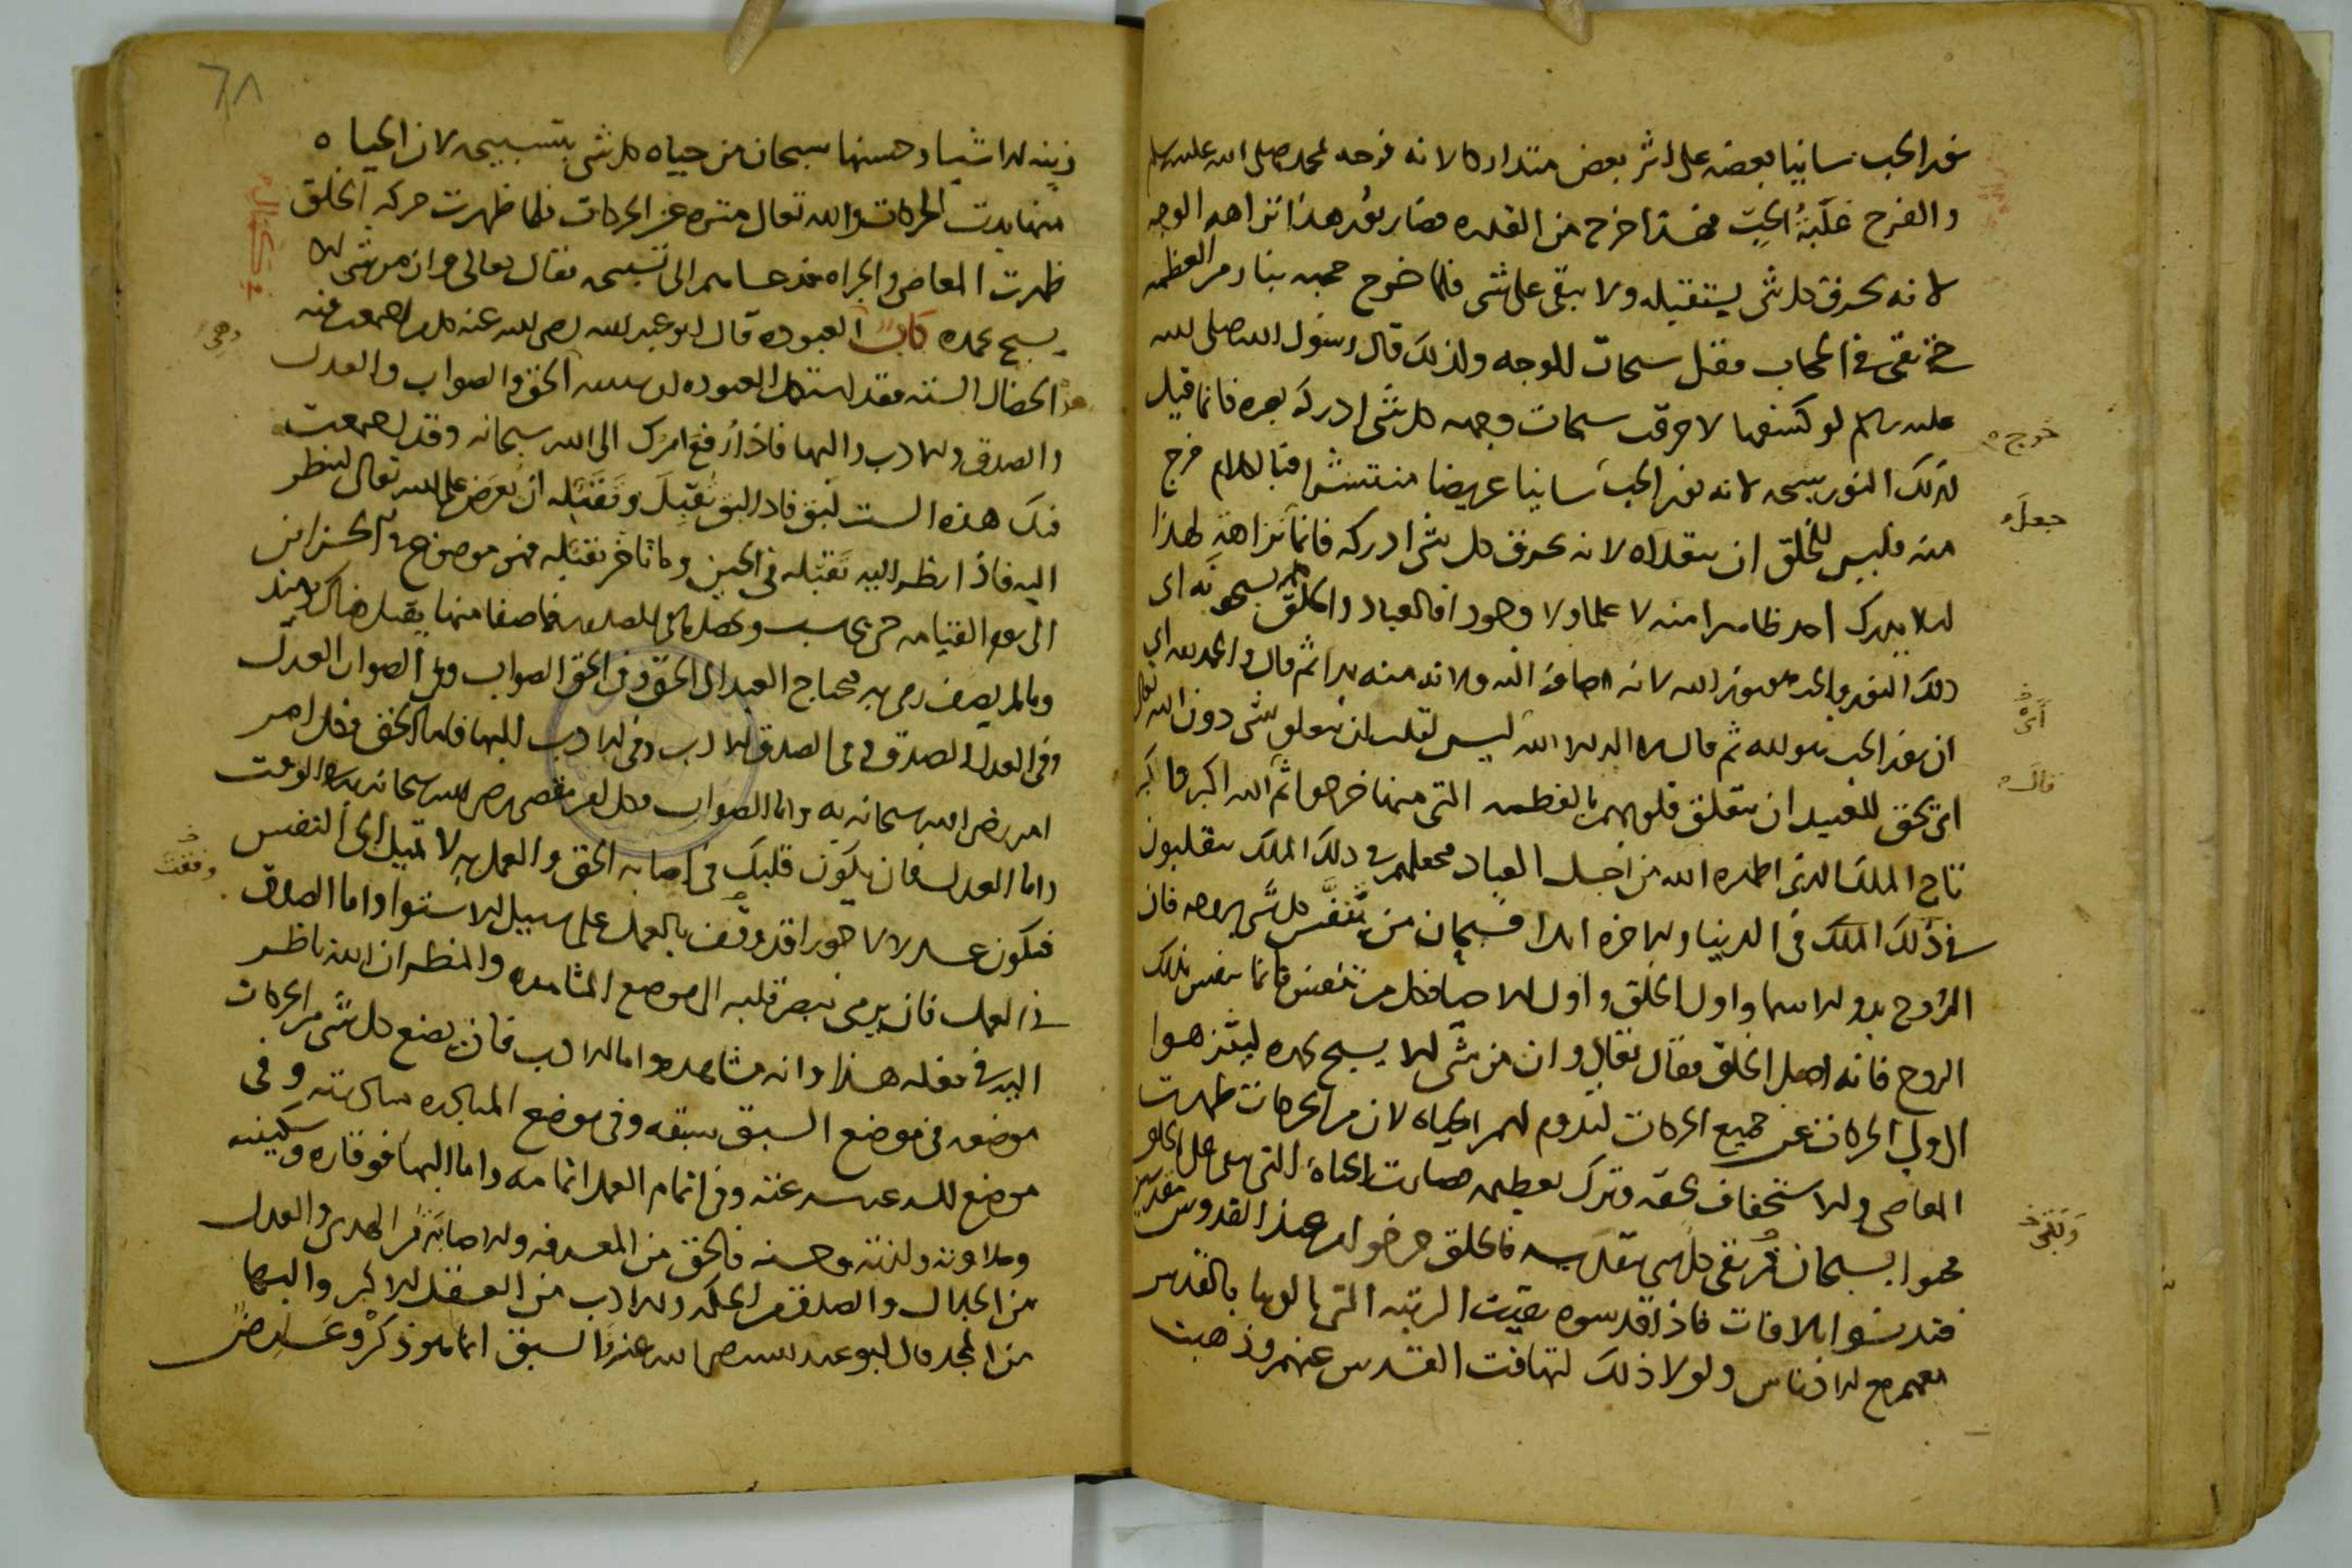 نور الحب سابيا بعضه على اثر بعض متداركا لانه فرحه لمحمد صلى الله عليه وسلم
والفرح غلبة الحب فهذا خرج من القدره فصار نور هذا نزاهه الوجه
لانه يحرق كل شى يستقبله ولا يبقى على شى فلما خرج حجبه بنار من العظمه
حتى بقى فى الحجاب مقبل سبحات للوجه ولذلك قال رسول الله صلى الله
عليه وسلم لو كشفها لاحرقت سبحات وجهه كل شى ادركه بصره فانما قيل
لذلك النور سبحه لانه نور الحب سابيا عريضا منتشرا فبالكلام خرج
منه فليس للخلق ان يتقلداه لانه يحرق كل شى ادركه فانما نزاهة لهذا
ليلا يدرك احد ظاهرا منه لا علما ولا وجودا فالعباد والخلق يسبحونه اى
ذلك النور والحب هو نور الله لانه اضافه اليه ولانه منه بدا ثم قال والحمد لله اى
ان نور الحب هو لله ثم قال لا اله الا الله ليس لقلب ان يتعلق بشى دون الله تعالى
اى يحق للعبيد ان يتعلق قلوبهم بالعظمه التى منها خرجوا ثم الله اكبر فاكبر
تاج الملك الذى اظهره الله من اجل العباد فجعلهم فى ذلك الملك يتقلبون
فى ذلك الملك فى الدنيا والاخره ابدا فسبحان من تنفس كل شى بروحه فان
الروح بدو الاسما واول الخلق واول الاحيا فكل من تنفس فانما تنفس بذلك
الروح فانه اصل الخلق فقال تعالى وان من شى الا يسبح بحمده لينزهوا
الولى الحركات عن جميع الحركات ليدوم لهم الحياه لان من الحركات ظهرت
المعاصى والاستخفاف بحقه وترك تعظيمه صارت الحياه التى هى على الخلق
محوا بسبحان من بقى كل شى بقدسه فالخلق خرجوا من عند القدوس مقدسين
فتدنسوا بالافات فاذا قدسوه بقيت الرتبه التى بالوبا بالقدس
معهم مع الادناس ولولا ذلك لتهافت القدس عنهم وذهبت
خرج
جعل
اى
قال
وبقى
٦٨
زينه الاشيا وحسنها سبحان من حياه كل شى بتسبيحه لان الحياه
منها بدت الحركات والله تعالى منزه عن الحركات فلما ظهرت حركه الخلق
ظهرت المعاصى والجراه فدعاهم الى تسبيحه فقال تعالى وان من شى الا
يسبح بحمده كتاب العبوده قال ابو عبد الله رضى الله عنه كل من اجتمعت فيه
هذه الخصال السته فقد استكمل العبوده لله الحق والصواب والعدل
والصدق والادب والبها فاذا رفع امرك الى الله سبحانه وقد اجتمعت
فيك هذه الست لبق فاذا لبق تقبل وتقبله ان يعرض على الله تعالى لينظر
اليه فاذا نظر اليه تقبله فى الحين وما تاخر تقبله فهو موضوع فى الخزاين
الى يوم القيامه حتى يحاسب ويحصل ما فى الصدور فما صفا منها يقبل هناك يوميذ
وما لم يصف رمى به فيحتاج العبد الى الحق وفى الحق الصواب وفى الصواب العدل
وفى العدل الصدق وفى الصدق الادب وفى الادب البها فاما الحق فكل امر
امر رضى الله سبحانه به واما الصواب فكل امر يقضى رضى الله سبحانه به الوقت
واما العدل فان يكون قلبك فى اصابه الحق والعمل به لا تميل الى النفس
فيكون عدلا لا جورا قد وقف بالعمل على سبيل الاستوا واما الصدق
فى العمل فان يرمى ببصر قلبه الى موضع المشاهده والمنظر ان الله ناظر
اليه فى فعله هذا وانه مشاهده واما الادب فان يضع كل شى من الحركات
موضعه فى موضع السبق سبقه وفى موضع المبادره مبادرته وفى
موضع السرعه سرعته وفى اتمام العمل اتمامه واما البها فوقاره وسكينته
وحلاوته ولذته وحسنه فالحق من المعرفه والاصابه من الهدى والعدل
من الجلال والصدق من الحكمه والادب من العقل الاكبر والبها
من المجد قال ابو عبد الله رضى الله عنه والسبق انما هو ذكر وعارض
وهى
وقفت